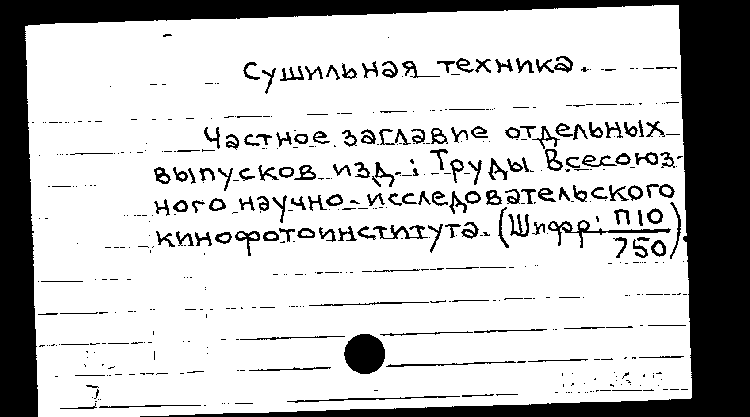 Сушильная техника.
Частное заглавие отдельных
выпусков изд.: Труды Всесоюз-
ного научно-исследовательского
кинофотоинститута. (Шифр: П10
750).
7